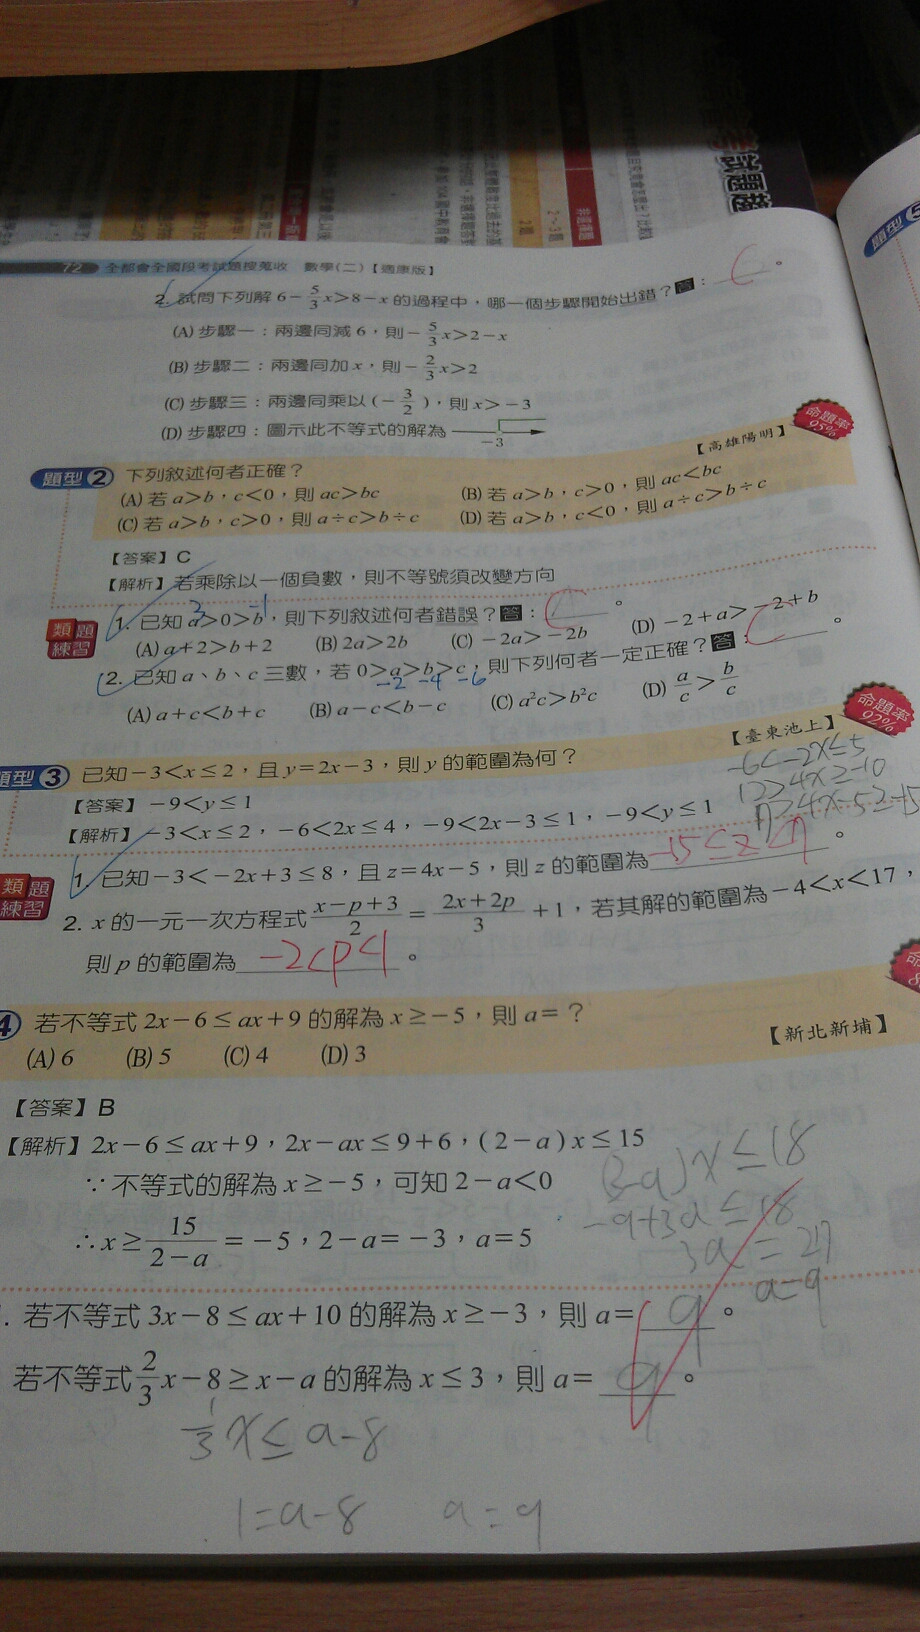 試題
72 全都會全國段考試題搜蒐收 數學(二)【適康版】
2. 試問下列解 6−5/3x>8−x 的過程中，哪一個步驟開始出錯？答：C。
(A) 步驟一：兩邊同減 6，則−5/3x>2−x
(B) 步驟二：兩邊同加 x，則−2/3x>2
(C) 步驟三：兩邊同乘以 (−3/2)，則 x>−3
(D) 步驟四：圖示此不等式的解為
−3
命題率 95%
【高雄陽明】
題型 2 下列敘述何者正確？
(A) 若 a>b，c<0，則 ac>bc (B) 若 a>b，c>0，則 ac<bc
(C) 若 a>b，c>0，則 a÷c>b÷c (D) 若 a>b，c<0，則 a÷c>b÷c
【答案】C
【解析】若乘除以一個負數，則不等號須改變方向
3 −1
類題練習 1. 已知 a>0>b，則下列敘述何者錯誤？答：C。
(A) a+2>b+2 (B) 2a>2b (C) −2a>−2b (D) −2+a>−2+b
2. 已知 a、b、c 三數，若 0>a>b>c，則下列何者一定正確？答：C。
−2 −4 −6
(A) a+c<b+c (B) a−c<b−c (C) a²c>b²c (D) a/c>b/c
命題率 92%
【臺東池上】
題型 3 已知−3<x≤2，且 y=2x−3，則 y 的範圍為何？
【答案】−9<y≤1
【解析】−3<x≤2，−6<2x≤4，−9<2x−3≤1，−9<y≤1
−6<−2x≤5
12>4x≥−10
7>4x−5≥−15
類題練習 1. 已知−3<−2x+3≤8，且 z=4x−5，則 z 的範圍為 −15≤z<7。
2. x 的一元一次方程式 (x−p+3)/2=(2x+2p)/3+1，若其解的範圍為−4<x<17，
則 p 的範圍為 −2<p<1。
4 若不等式 2x−6≤ax+9 的解為 x≥−5，則 a=？
(A) 6 (B) 5 (C) 4 (D) 3
【新北新埔】
【答案】B
【解析】2x−6≤ax+9，2x−ax≤9+6，(2−a)x≤15
∵不等式的解為 x≥−5，可知 2−a<0
∴x≥15/(2−a)=−5，2−a=−3，a=5
(3−a)x≤18
−9+3a≤18
3a=27
a=9
. 若不等式 3x−8≤ax+10 的解為 x≥−3，則 a=9。
若不等式 2/3x−8≥x−a 的解為 x≤3，則 a=9。
1/3x≤a−8
1=a−8 a=9